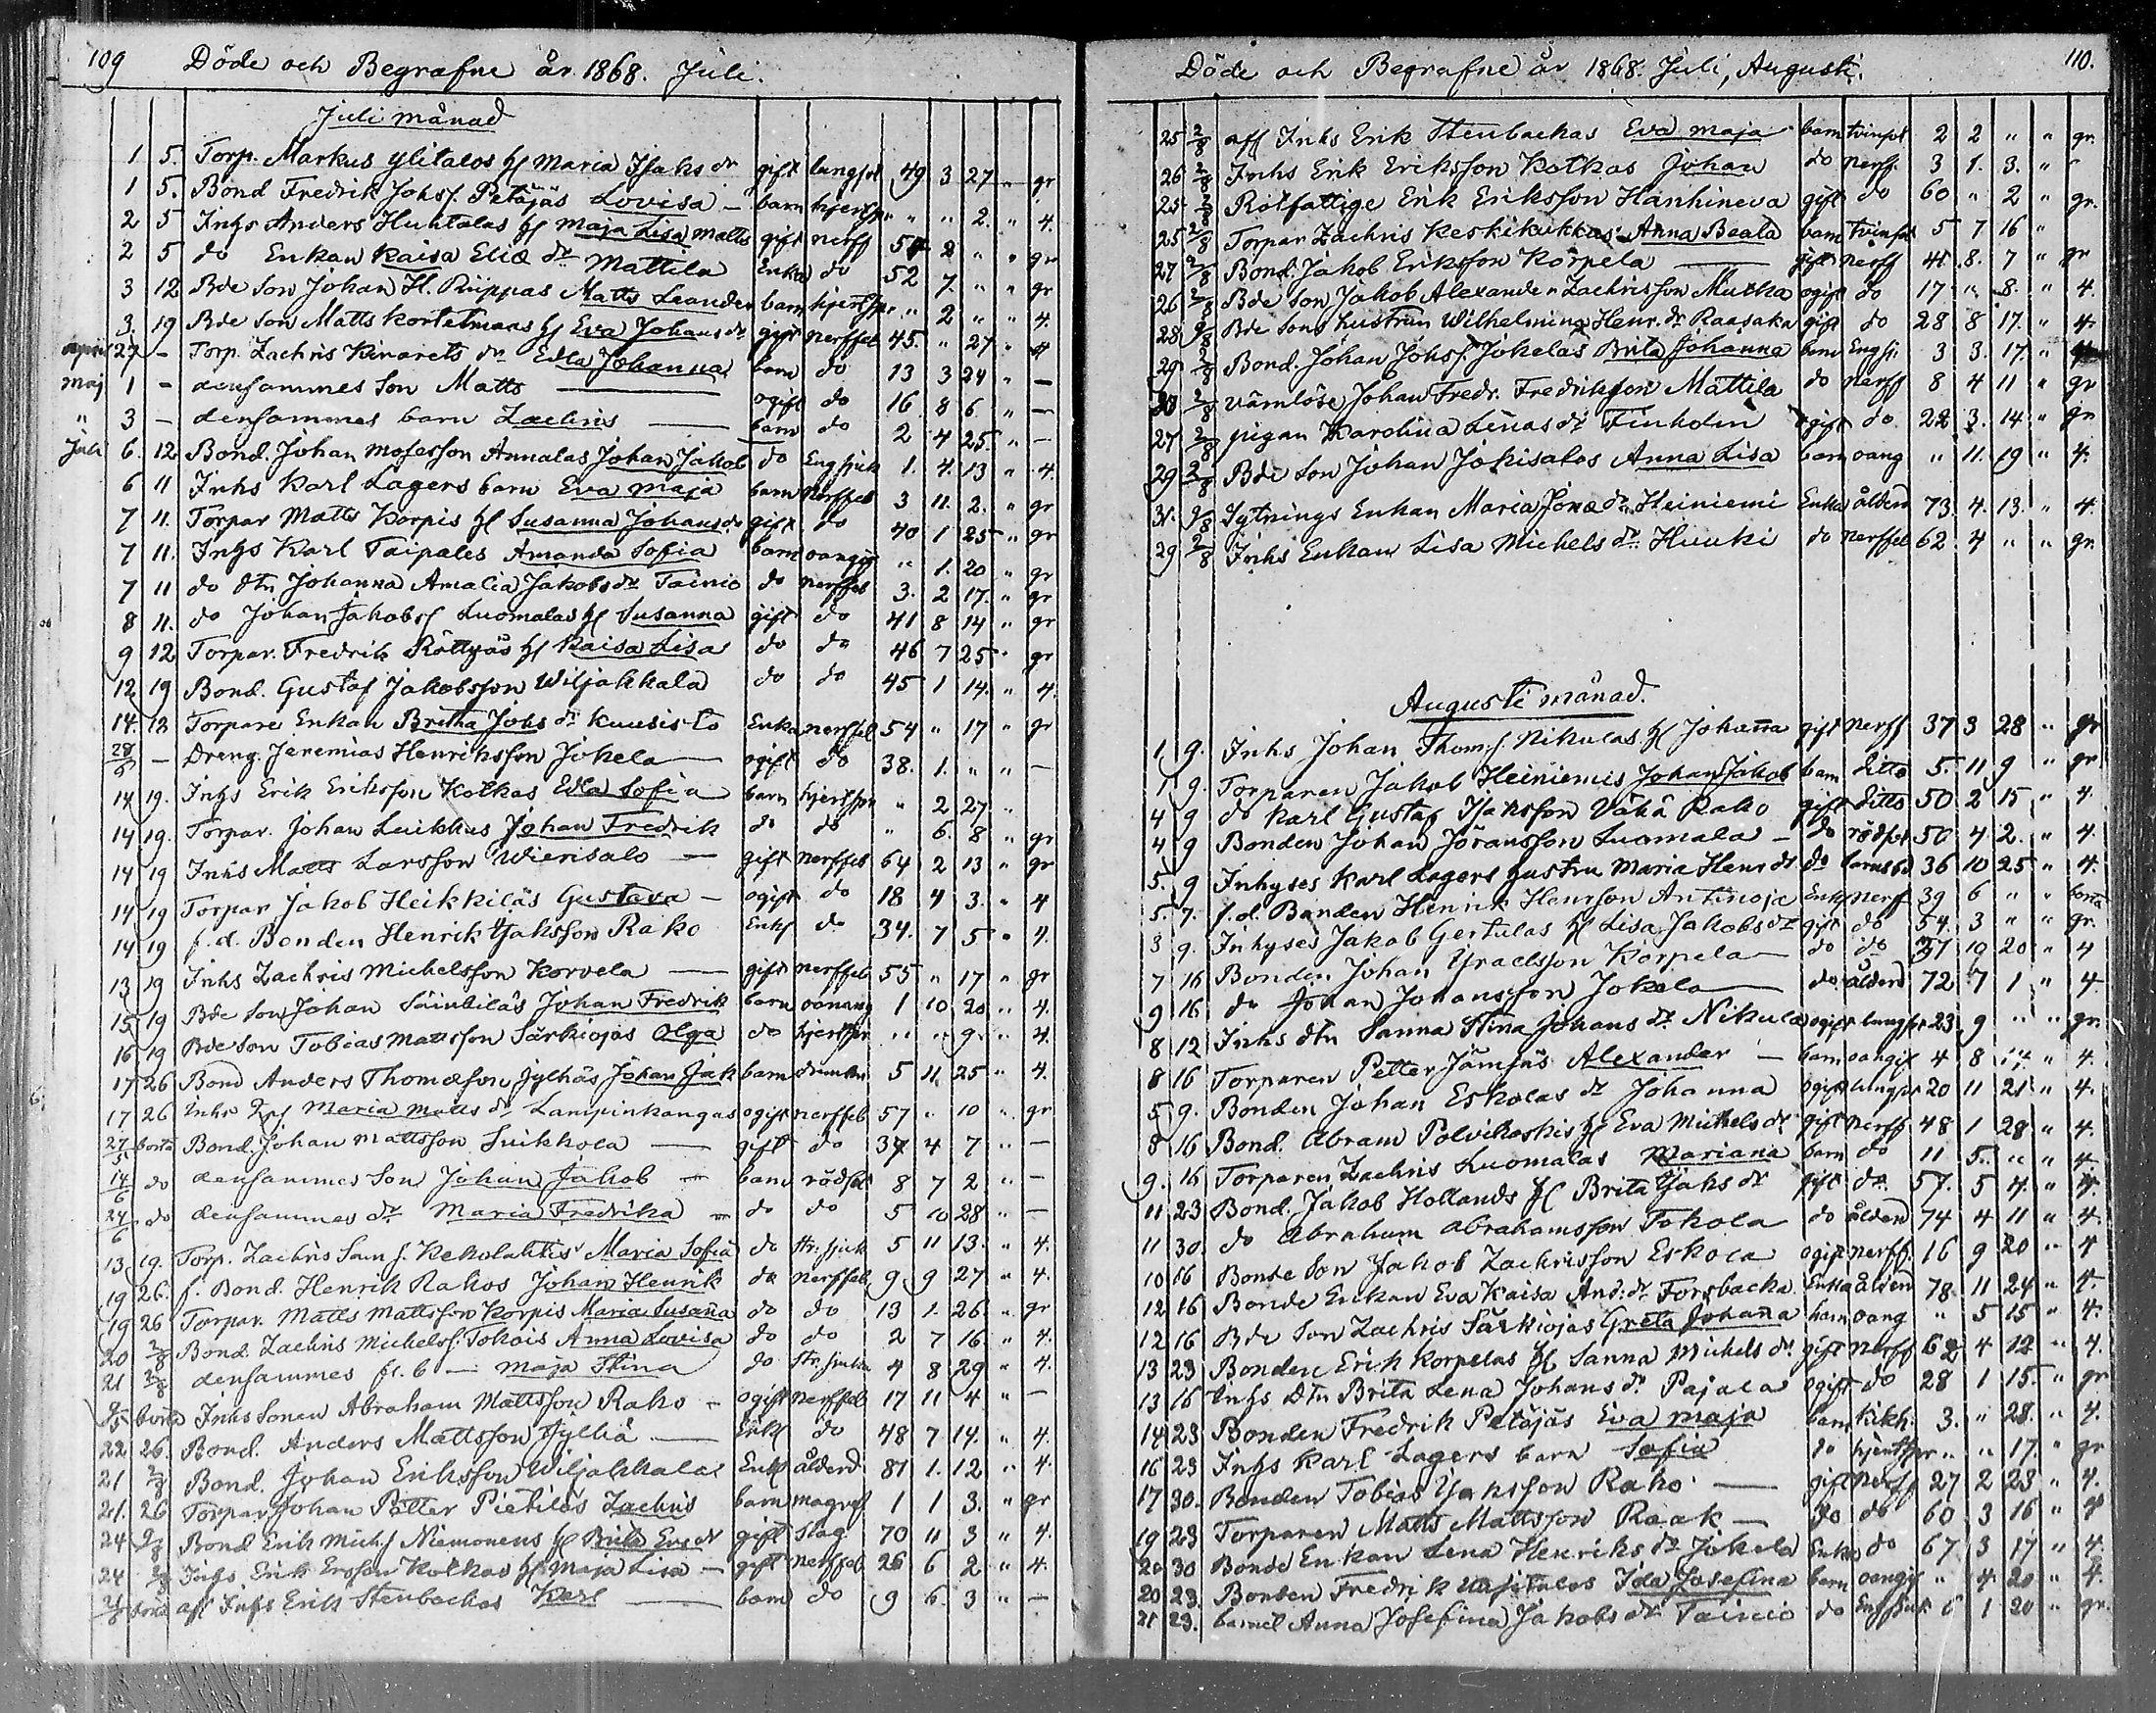 109 Döde och Begrafne år 1868. Juli.
Juli månad
1 5. Torp. Markus Ylitalos hu Maria Isaks dr gift lungsot 49 3 27 " gr
1 5. Bond Fredrik Johs s. Petäjäs Lovisa — barn hjertspr " " 2. " 4.
2 5 Inhs Anders Huhtalas hu Maja Lisa Matts gift nerff 54 2 " " gr
2 5 do Enkan Kaisa Eliæ dr Mattila Enka do 52 7. " " gr
3 12 Bde Son Johan H. Riippas Matts Leander barn hjertspr " 2 " " 4.
3. 19 Bde Son Matts Kortetmaas hu Eva Johans dr gift nerffeb 45. " 27 " 4
april 27 – Torp. Zachris Kinarets dr Edla Johanna barn do 13 3 24 " —
maj 1 – densammes Son Matts — ogift do 16 8 6. " —
" 3 – densammes barn Zachris — barn do 2 4 25. " —
Juli 6. 12 Bond. Johan Mosesson Annalas Johan Jakob do Eng sjuk 1. 4. 13 " 4.
6 11 Inhs Karl Lagers barn Eva Maja barn Nerffeb 3 11. 2. " gr
7 11. Torpar Matts Korpis hu Susanna Johans dr gift do 40 1 25 " gr
7 11. Inhs Karl Taipales Amanda Sofia barn oangif " 1. 20 " gr
7 11 do dtn Johanna Amalia Jakobs dr Tainio do nerffeb 3. 2 17. " gr
8 11. do Johan Jakobs s Luomalas hu Susanna gift do 41 8 14 " gr
9 12 Torpar. Fredrik Röttyäs hu Kaisa Lisa do do 46 7 25 " gr
12 19 Bond. Gustaf Jakobsson Wiljakkala do do 45 1 14. " 4.
14. 18 Torpare Enkan Bretha Johs dr Kuusisto Enka nerffeb 54 " 17 " gr
28/6 – Dreng. Jeremias Henriksson Jokela — ogift do 38. 1. " " —
14 19. Inhs Erik Eriksson Kotkas Edla Sofia barn hjertspr " 2 27 "
14 19. Torpar. Johan Luikkus Johan Fredrik do do " 6. 8 " gr
14 19 Inhs Matts Larsson Wierisalo — gift nerffeb 64 2 13 " gr
14 19 Torpar Jakob Heikkiläs Gustava – ogift do 18 4 3. " 4
14 19 f.d. Bonden Henrik Isaksson Rako Enkl do 34. 7 5 " 4.
13 19 Inhs Zachris Michelsson Korvela — gift nerffeb 55 " 17 " gr
15 19 Bde Son Johan Säinliläs Johan Fredrik barn oanang 1 10 20 " 4.
16 19 Bde Son Tobias Mattsson Särkiojas Olga do hjertspr " " 9. " 4.
17 26 Bond Anders Thomæson Jylhäs Johan Jak barn drunkn 5 11. 25 " 4.
17 26 Inhs Maria Matts dr Lampinkangas ogift nerffeb 57 " 10 " gr
27/5 borta Bond. Johan Mattsson Suikkola — gift do 37 4 7 " —
14/6 do densammes Son Johan Jakob — barn rödsot 8 7 2 " —
24/6 do densammes dr Maria Fredrika — do do 5 10 28 " —
13 19. Torp. Zachris Sam s. Kekolahtis Maria Sofia do Str.sjuk 5 11 13. " 4.
19 26. f. Bond. Henrik Rakos Johan Henrik do nerffeb 9 9 27 " 4.
19 26 Torpar. Matts Mattsson Korpis Maria Susaña do do 13 1. 26. " gr
20 2/8 Bond. Zachris Michels s. Tokois Anna Lovisa do do 2 7 16. " 4.
21 2/8 densammes fl. b — Maja Stina do Str.sjuka 4 8 29 " 4.
borta Inhs Sonen Abraham Mattsson Rako – ogift nerffeb 17 11 4 " —
22 26. Bond. Anders Mattsson Jylhä — Enkl do 48 7 14. " 4.
21 2/8 Bond. Johan Eriksson Wiljakkala Enkl ålderd 81 1. 12 " 4.
21. 26 Torpar Johan Petter Pietiläs Zachris barn magref 1 1 3. " gr
24 2/8 Bond Erik Mich s Niemonens hu Brita Er dr gift slag 70 11 3 " 4.
24 2/8 Inhs Erik Ersson Kotkas hu Maja Lisa – gift nerffeb 26 6 2 " 4.
borta aff Inhs Erik Stenbackas Karl — barn do 9 6. 3 " —
Döde och Begrafne år 1868. Juli, Augusti. 110.
25 2/8 aff Inhs Erik Stenbackas Eva Maja barn tvinsot 2 2 " " gr.
26 2/8 Inhs Erik Eriksson Kotkas Johan do nerff. 3 1. 3. "
25 2/8 Rotfattige Erik Eriksson Hanhineva gift do 60 " 2 " gr.
25 2/8 Torpar Zachris Keskikukkas Anna Beata barn tvinsot 5 7 16 "
27 2/8 Bond. Jakob Eriksson Korpela — gift nerff 41 8. 7 " gr
26 2/8 Bde Son Jakob Alexander Zachrisson Mutka ogift do 17 " 8. " 4.
28 9/8 Bde Sons hustrun Wilhelmina Henr. dr Raasaka gift do 28 8 17. " 4.
29 2/8 Bond. Johan Johs s. Jokelas Brita Johanna barn Eng sj. 3 3. 17. "
30 2/8 värnlöse Johan Fredr. Fredriksson Mattila do nerff 8 4 11 " gr
27 2/8 pigan Karolina Linas dr Finholm ogift do 22 3. 14 " gr
29 2/8 Bde Son Johan Jokisalos Anna Lisa barn oang " 11. 19 " 4.
31. 9/8 Sytnings Enkan Maria Jonæ dr Heiniemi Enka ålderd 73. 4. 13. " 4.
29 2/8 Inhs Enkan Lisa Michels dr Huuki do nerffeb 62. 4 " " gr.
Augusti månad.
1 9. Inhs Johan Thom s. Nikulas hu Johaña gift nerff 37 3 28 " gr
1 9. Torparen Jakob Heiniemis Johan Jakob barn ditto 5. 11 9 " gr
4 9 do Karl Gustaf Isaksson Vähä Rako gift ditto 50 2 15 " 4.
4 9 Bonden Johan Jöransson Luomala – do rödsot 50 4 2. " 4.
5. 9 Inhyses Karl Lagers hustru Maria Henr dr do barnsbd 36 10 25 " 4.
5. 7. f.d. Bonden Henrik Henrsson Antinoja Enkl nerff 39 6 " " borta
3 9. Inhyses Jakob Gertulas hu Lisa Jakobs dr gift do 54. 3 " " gr.
7 16 Bonden Johan Israelsson Korpela do do 10 20 " 4
9 16 do Johan Johansson Jokela — do ålderd 72 7 1 " 4
8 12 Inhs dtn Sanna Stina Johans dr Nikula ogift lungsot 23 9 " " gr.
8 16 Torparen Petter Jämsäs Alexander – barn oangif 4 8 " 4.
5 9. Bonden Johan Eskolas dr Johanna ogift lungsot 20 11 21 " 4.
8 16 Bond. Abram Polvikoskis hu Eva Michels dr gift nerff 48 1 28 " 4.
9. 16 Torparen Zachris Luomalas Mariana barn do 11 5. " " 4
11 23 Bond. Jakob Hollands hu Brita Isaks dr gift do 57. 5 4. " 4.
11 30. do Abraham Abrahamsson Tokola do ålderd 74 4 11 " 4
10 16 Bonde Son Jakob Zachrisson Eskola ogift nerff. 16 9 20 " 4
12 16 Bonde Enkan Eva Kaisa And: dr Forsbacka Enka ålderd 78. 11 24 " 4.
12 16 Bde Son Zachris Särkiojas Greta Johaña barn oang " 5 15 " 4.
13 23 Bonden Erik Korpelas hu Sanna Michels dr gift nerff 62 4 12 " 4.
13 16 Inhs Dtn Brita Lena Johans dr Pajala ogift do 28 1 15. " gr
14 23 Bonden Fredrik Petäjäs Eva Maja barn kikh. 3. " 28. " 4.
16 23 Inhs Karl Lagers barn Sofia do hjertspr " " 17. " gr
17 30. Bonden Tobias Isaksson Rako — gift nerff 27 2 23 " 4.
19 23 Torparen Matts Mattsson Raak — do do 60 3 16 " 4
20 30 Bonde Enkan Lena Henriks dr Jokela Enka do 67 3 17 " 4.
20 23. Bonden Fredrik Uusitalos Ida Josefina barn oangif " 4 20 " 4.
21 23. barnet Anna Josefina Jakobs dr Tainio do Eng sjuk 6 1 20 " gr.